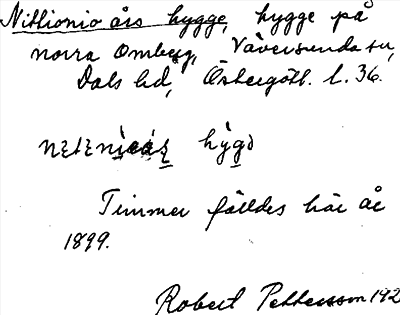 Nittionio års hygge, hygge på
norra Omberg, Väversunda sn,
Dals hd, Östergötl. l. 36.
hýgə
Timmer fälldes här år
1899.
Robert Pettersson 192